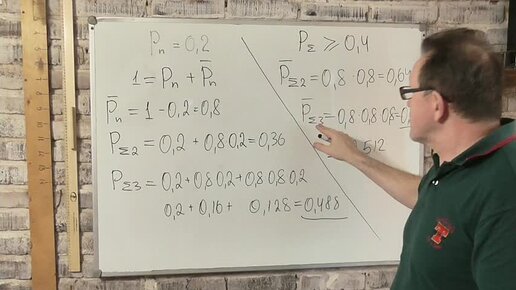 Pₙ = 0,2
1 = Pₙ + P̅ₙ
P̅ₙ = 1 - 0,2 = 0,8
P_Σ2 = 0,2 + 0,8 0,2 = 0,36
P_Σ3 = 0,2 + 0,8 0,2 + 0,8 0,8 0,2
0,2 + 0,16 + 0,128 = 0,488
P_Σ ⩾ 0,4
P̅_Σ2 = 0,8 · 0,8 = 0,64
P̅_Σ3 = 0,8 · 0,8 · 0,8 =
512